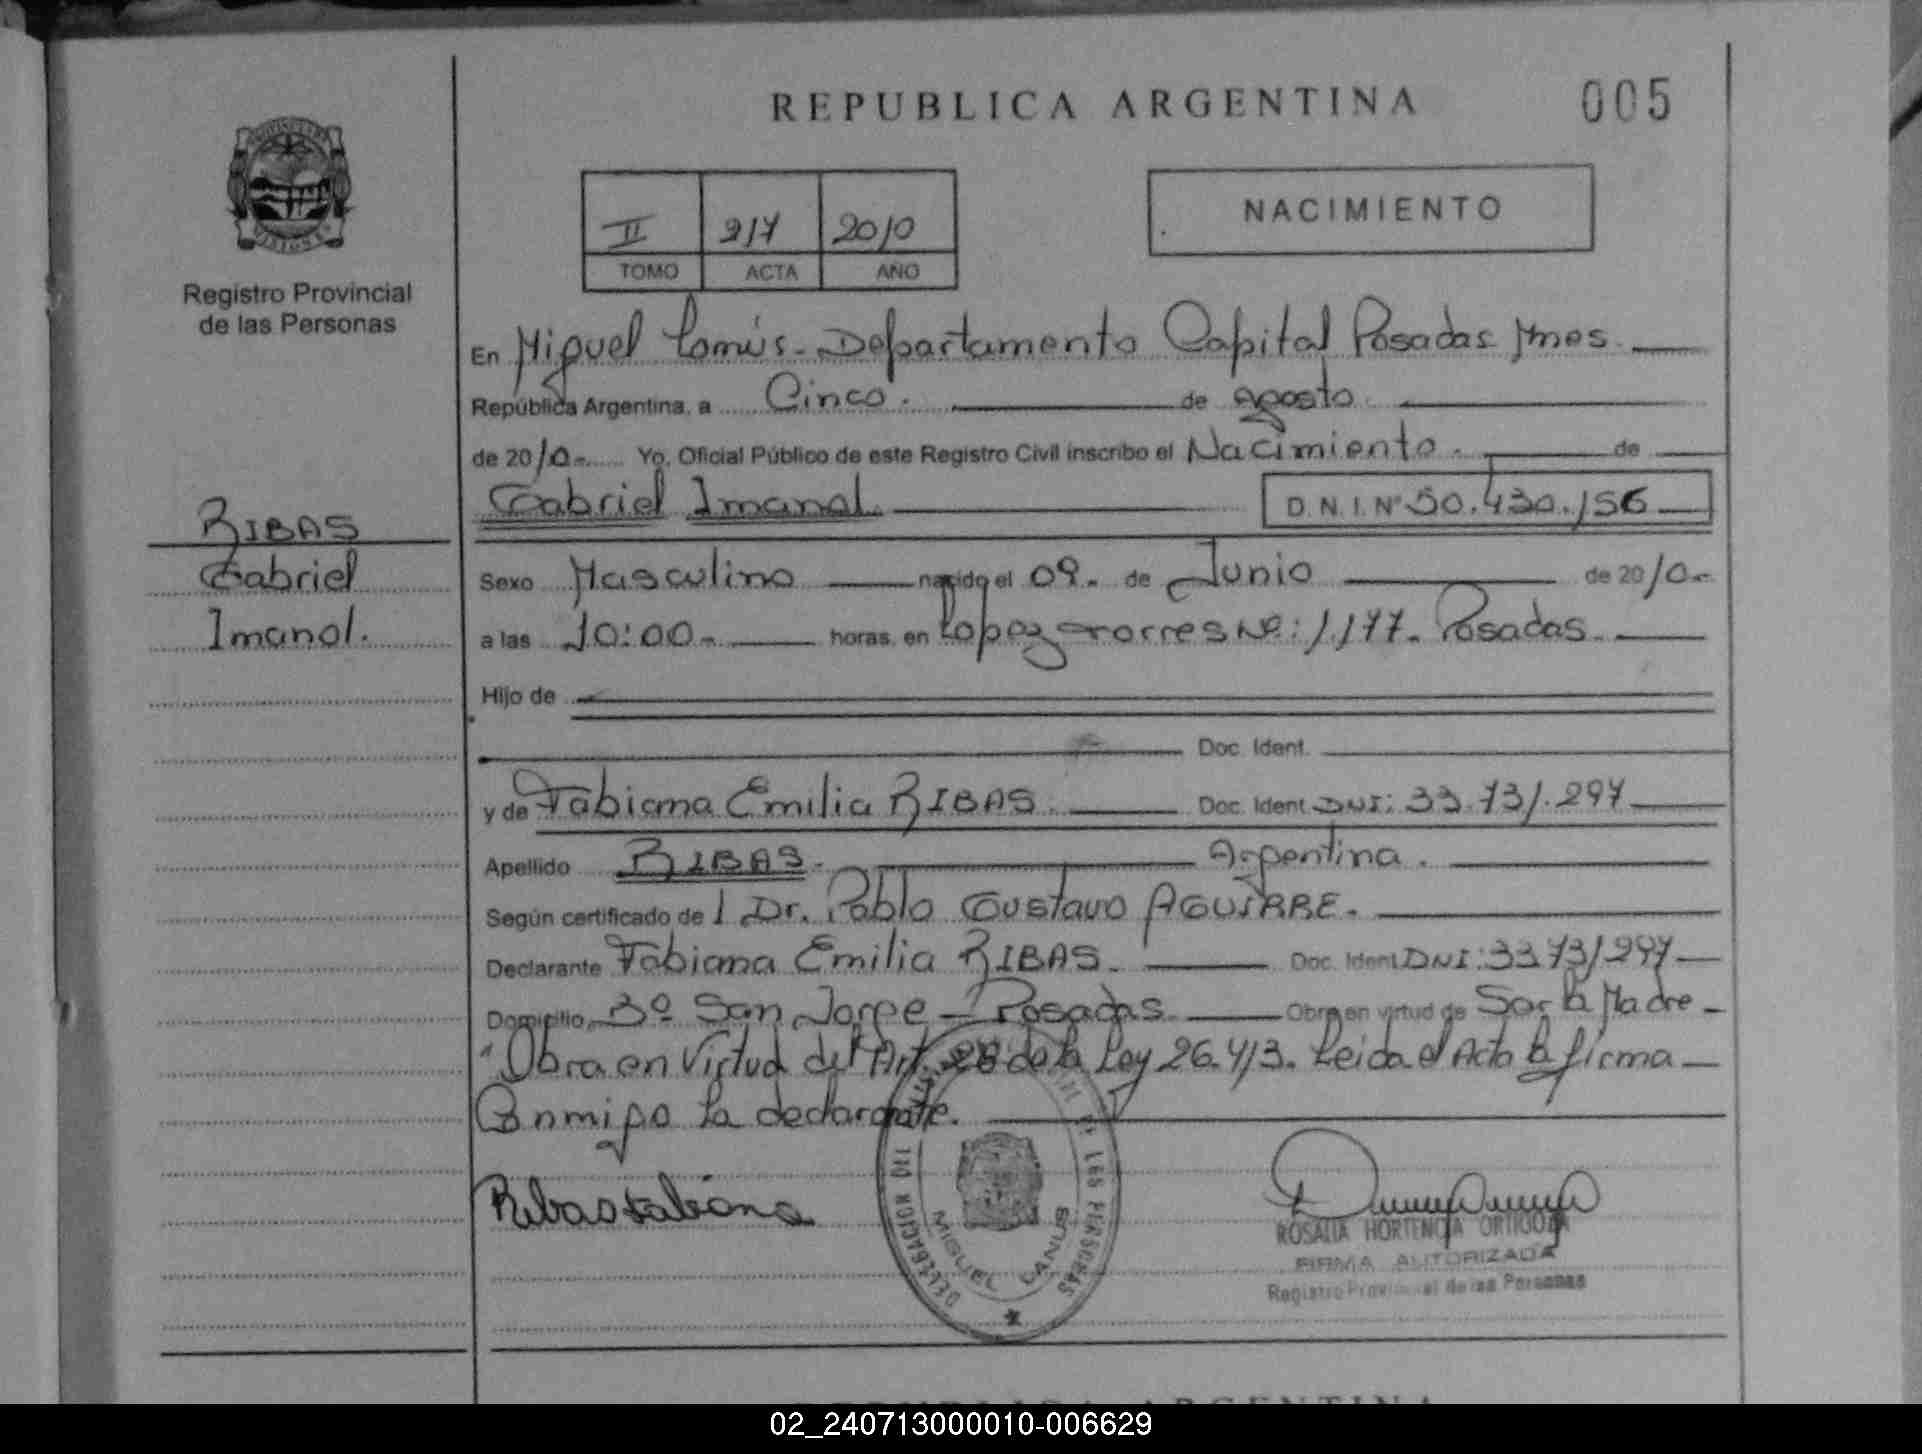 REPUBLICA ARGENTINA
005
II 217 2010
TOMO ACTA AÑO
NACIMIENTO
Registro Provincial
de las Personas
En Miguel Lanús - Departamento Capital Posadas Mnes.
República Argentina, a Cinco. de agosto
de 2010.- Yo, Oficial Público de este Registro Civil inscribo el Nacimiento. de
Gabriel Imanol. D. N. I. Nº 50.430.156
RIBAS
Gabriel
Imanol.
Sexo Masculino nacido el 09. de Junio de 2010.-
a las 10:00.- horas, en Lopez Torres Nº: 1177. Posadas.
Hijo de
Doc. Ident.
y de Fabiana Emilia RIBAS. Doc. Ident. DNI: 33.731.297
Apellido RIBAS. Argentina.
Según certificado de l Dr. Pablo Gustavo AGUIRRE.
Declarante Fabiana Emilia RIBAS. Doc. Ident. DNI: 33.731297
Domicilio Bº San Jorge - Posadas. Obra en virtud de Ser la Madre -
"Obra en Virtud del Art. 28 de la Ley 26.413. Leida el Acta la firma
Conmigo la declarante.
Ribas Fabiana
DELEGACION DE LAS PERSONAS
MIGUEL LANUS
ROSALIA HORTENCIA ORTIGOZA
FIRMA AUTORIZADA
Registro Provincial de las Personas
REPUBLICA ARGENTINA
02_240713000010-006629